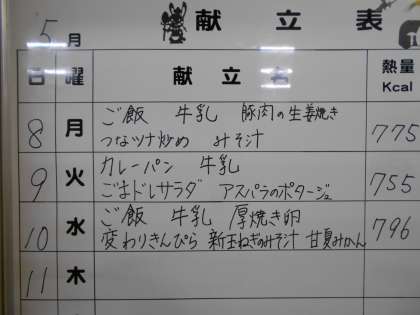 5月 献立表
日 曜 献立名 熱量 Kcal
8 月 ご飯 牛乳 豚肉の生姜焼き
つなツナ炒め みそ汁 775
9 火 カレーパン 牛乳
ごまドレサラダ アスパラのポタージュ 755
10 水 ご飯 牛乳 厚焼き卵
変わりきんぴら 新玉ねぎのみそ汁 甘夏みかん 796
11 木